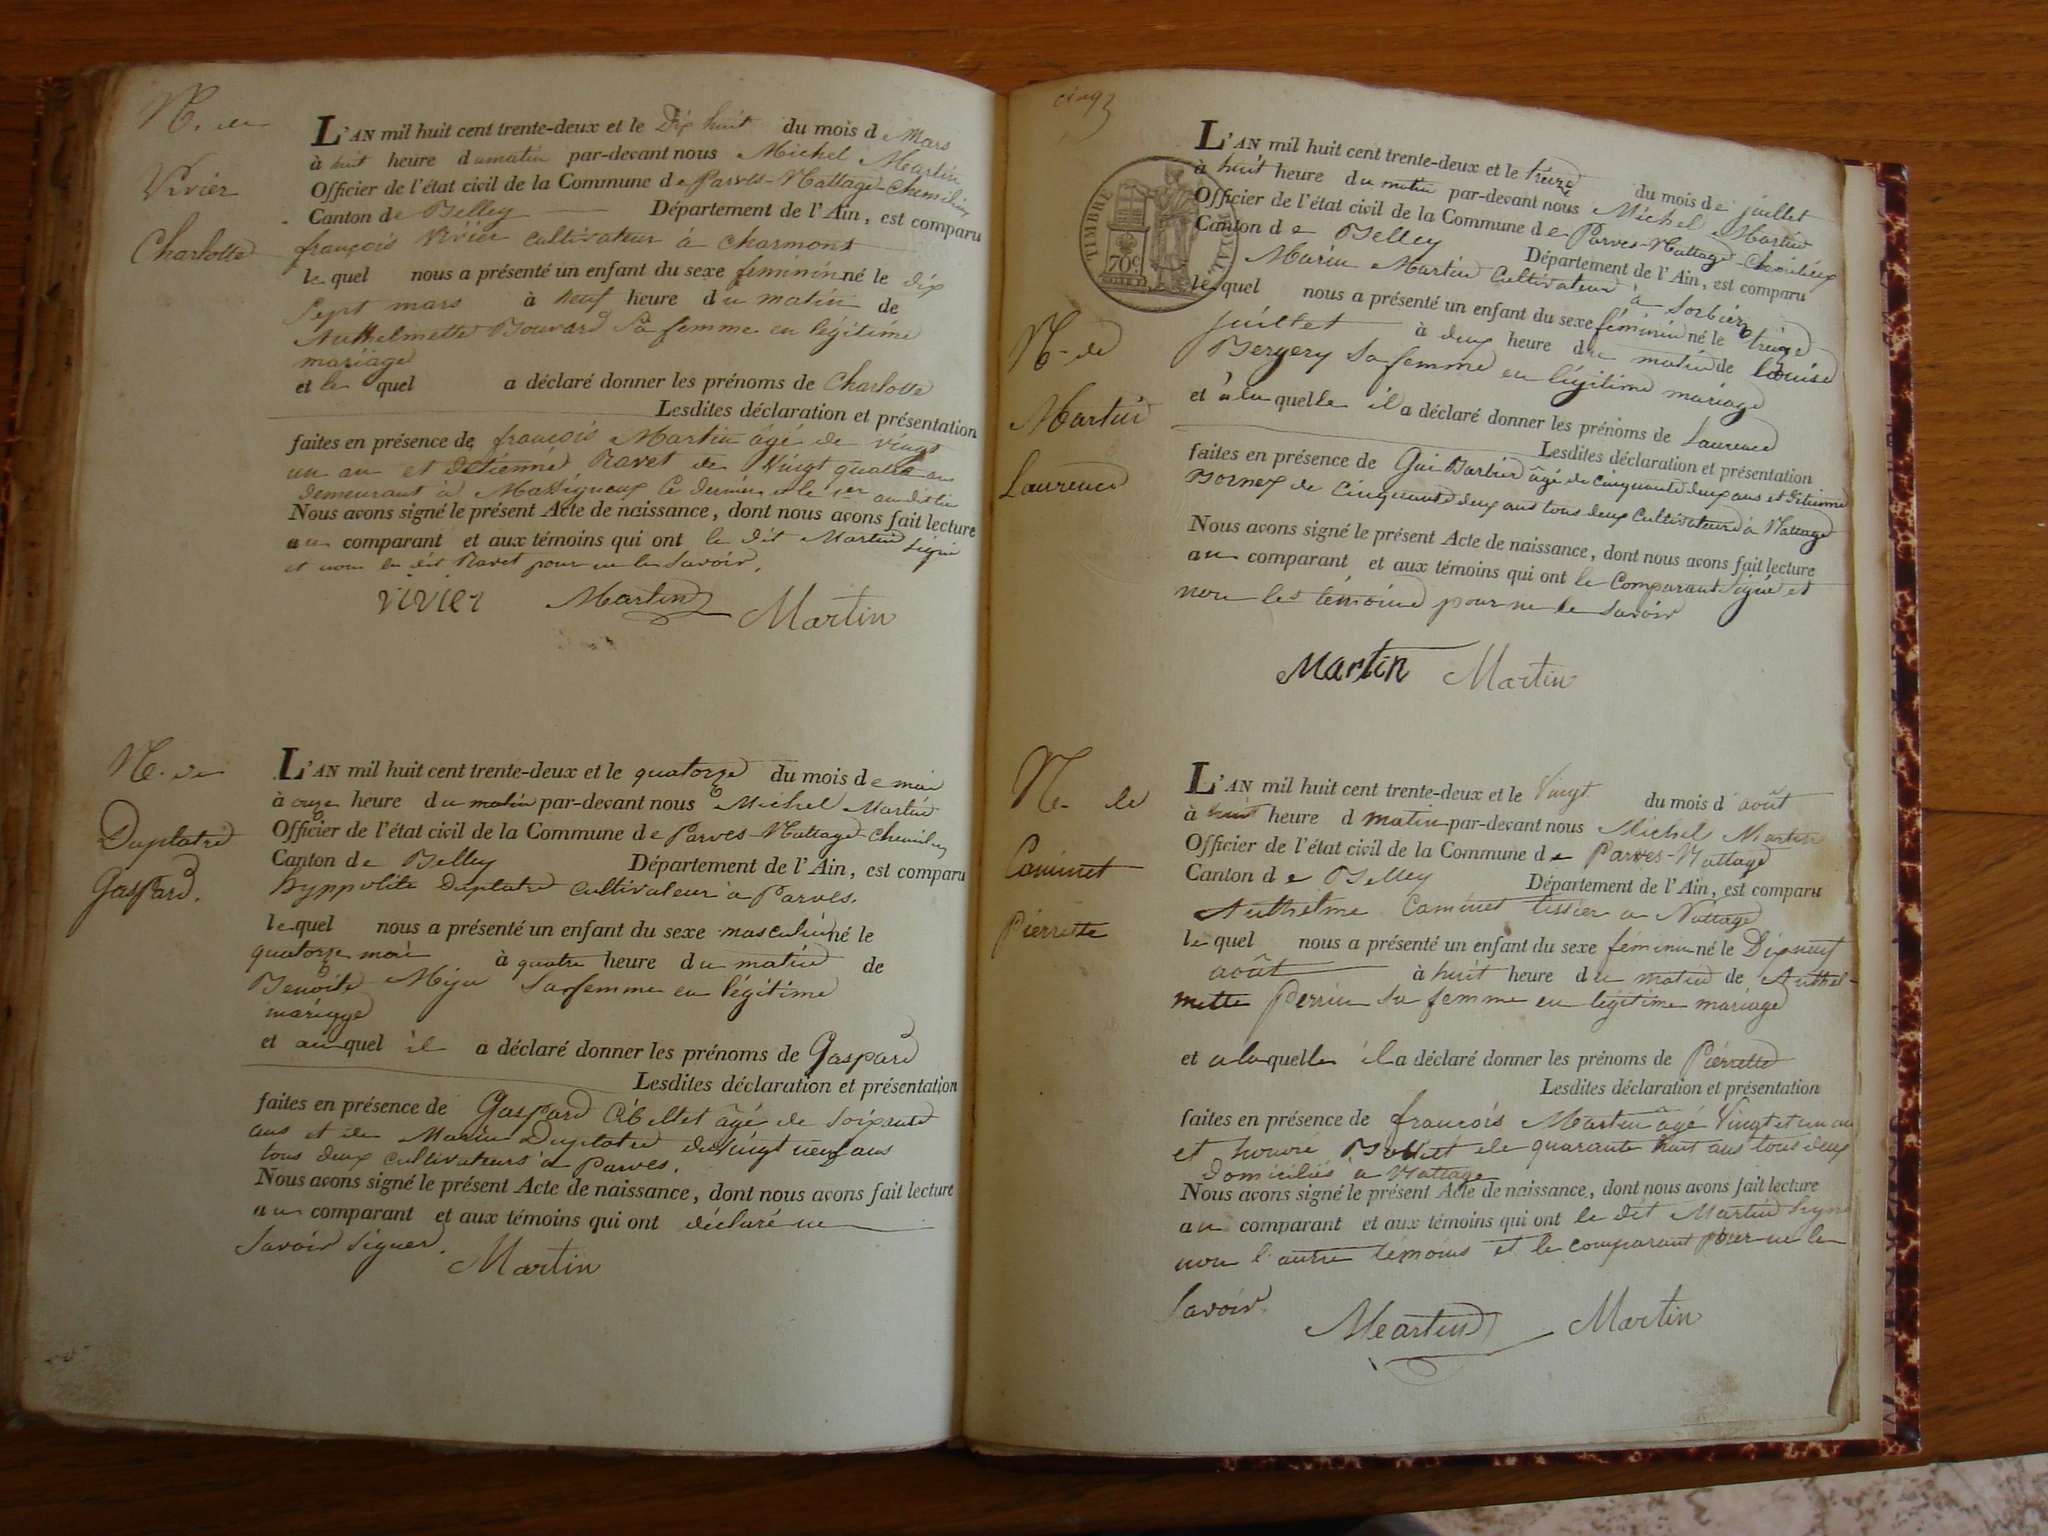 N. de
Vivier
Charlotte
L'AN mil huit cent trente-deux et le Dix huit du mois de Mars
à huit heure du matin par-devant nous Michel Martin
Officier de l'état civil de la Commune de Parves-Nattage-Chemilieu
Canton de Belley Département de l'Ain, est comparu
françois Vivier cultivateur à charmont
le quel nous a présenté un enfant du sexe feminin né le dix
sept mars à neuf heure du matin de
Anthelmette Bouvard Sa femme en légitime
mariage
et le quel a déclaré donner les prénoms de Charlotte
Lesdites déclaration et présentation
faites en présence de françois Martin âgé de vingt
un an et detienne Ravet de Vingt quatre ans
demeurant à Massigneux ce dernier et le 1er audit lieu
Nous avons signé le présent Acte de naissance, dont nous avons fait lecture
au comparant et aux témoins qui ont le dit Martin signé
et non le dit Ravet pour ne le Savoir.
Vivier Martin Martin
N. de
Duplatre
Gaspard.
L'AN mil huit cent trente-deux et le quatorze du mois de mai
à onze heure du matin par-devant nous Michel Martin
Officier de l'état civil de la Commune de Parves-Nattage-Chemilieu
Canton de Belley Département de l'Ain, est comparu
hyppolite Duplatre cultivateur à Parves.
le quel nous a présenté un enfant du sexe masculin né le
quatorze mai à quatre heure du matin de
Benoite Sa femme en légitime
mariage
et au quel il a déclaré donner les prénoms de Gaspard
Lesdites déclaration et présentation
faites en présence de Gaspard âgé de Soixante
ans et de Marin Duplatre de vingt neuf ans
tous deux cultivateurs à Parves.
Nous avons signé le présent Acte de naissance, dont nous avons fait lecture
au comparant et aux témoins qui ont déclaré ne
Savoir Signer.
Martin
cinq
TIMBRE ROYAL
70c
N. de
Martin
Laurence
L'AN mil huit cent trente-deux et le treize du mois de juillet
à huit heure du matin par-devant nous Michel Martin
Officier de l'état civil de la Commune de Parves-Nattage-Chemilieu
Canton de Belley Département de l'Ain, est comparu
Marin Martin Cultivateur à Sorbier
le quel nous a présenté un enfant du sexe féminin né le treize
juillet à deux heure du matin de Louise
Bergery Sa femme en légitime mariage
et à la quelle il a déclaré donner les prénoms de Laurence
Lesdites déclaration et présentation
faites en présence de Gui Barbier âgé de cinquante deux ans et Etienne
Bornex de Cinquante deux ans tous deux Cultivateurs à Nattage
Nous avons signé le présent Acte de naissance, dont nous avons fait lecture
au comparant et aux témoins qui ont le Comparant Signé et
non les témoins pour ne le Savoir
Martin Martin
N. de
Caminet
Pierrette
L'AN mil huit cent trente-deux et le Vingt du mois d août
à huit heure d matin par-devant nous Michel Martin
Officier de l'état civil de la Commune de Parves-Nattage
Canton de Belley Département de l'Ain, est comparu
Anthelme Caminet tissier a Nattage
le quel nous a présenté un enfant du sexe féminin né le Dix neuf
août à huit heure du matin de Anthel-
mette Perrin Sa femme en légitime mariage
et a la quelle il a déclaré donner les prénoms de Pierrette
Lesdites déclaration et présentation
faites en présence de françois Martin âgé Vingt et un an
et de quarante huit ans tous deux
Domiciliés à Nattage
Nous avons signé le présent Acte de naissance, dont nous avons fait lecture
au comparant et aux témoins qui ont le dit Martin Signé
non l'autre témoins et le comparant pour ne le
Savoir.
Martin Martin